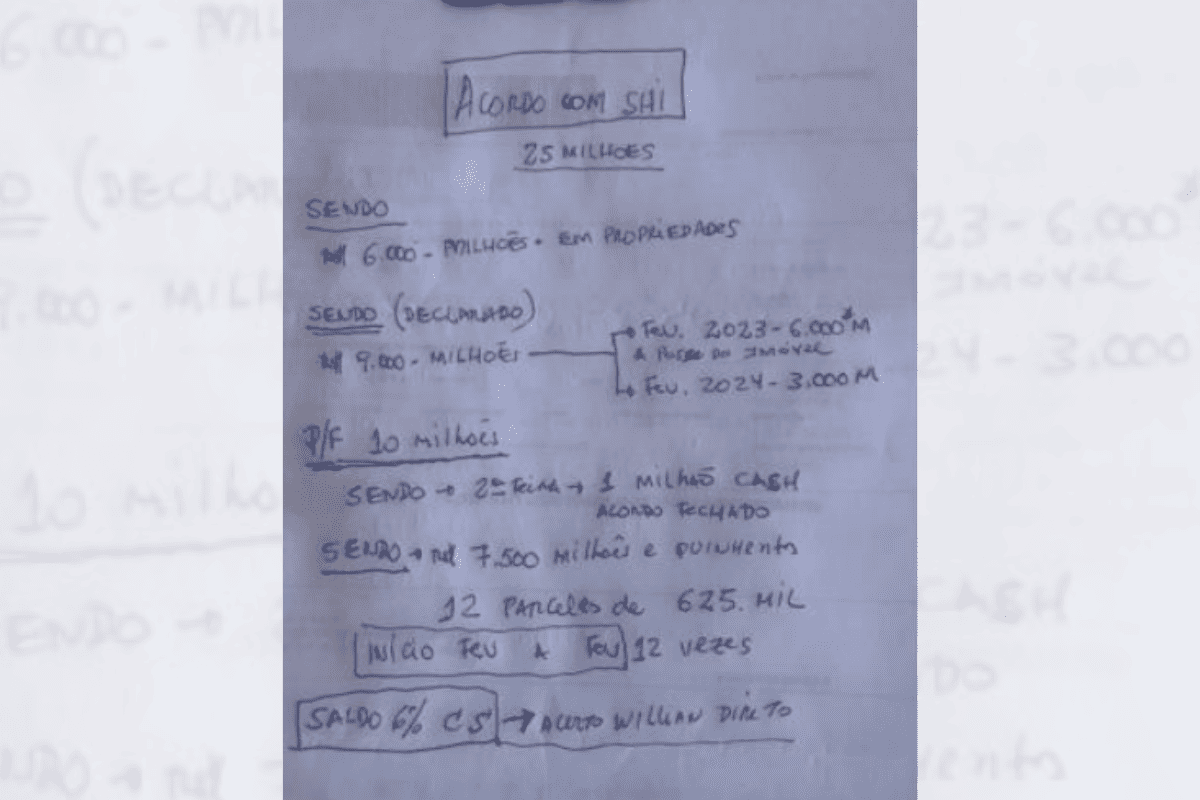 ACORDO COM SHI
25 MILHOES
SENDO
R$ 6.000 - MILHOES. EM PROPRIEDADES
SENDO (DECLARADO)
R$ 9.000 - MILHÕES
Fev. 2023 - 6.000 M
A Posse do Imóvel
Fev. 2024 - 3.000 M
P/F 10 milhões
SENDO → 2ª feira → 1 MILHÃO CASH
ACORDO FECHADO
SENDO → R$ 7.500 milhões e QUINHENTOS
12 PARCELAS de 625. MIL
INÍCIO FEV A FEV 12 vezes
SALDO 6% CS → ACERTO WILLIAN DIRETO